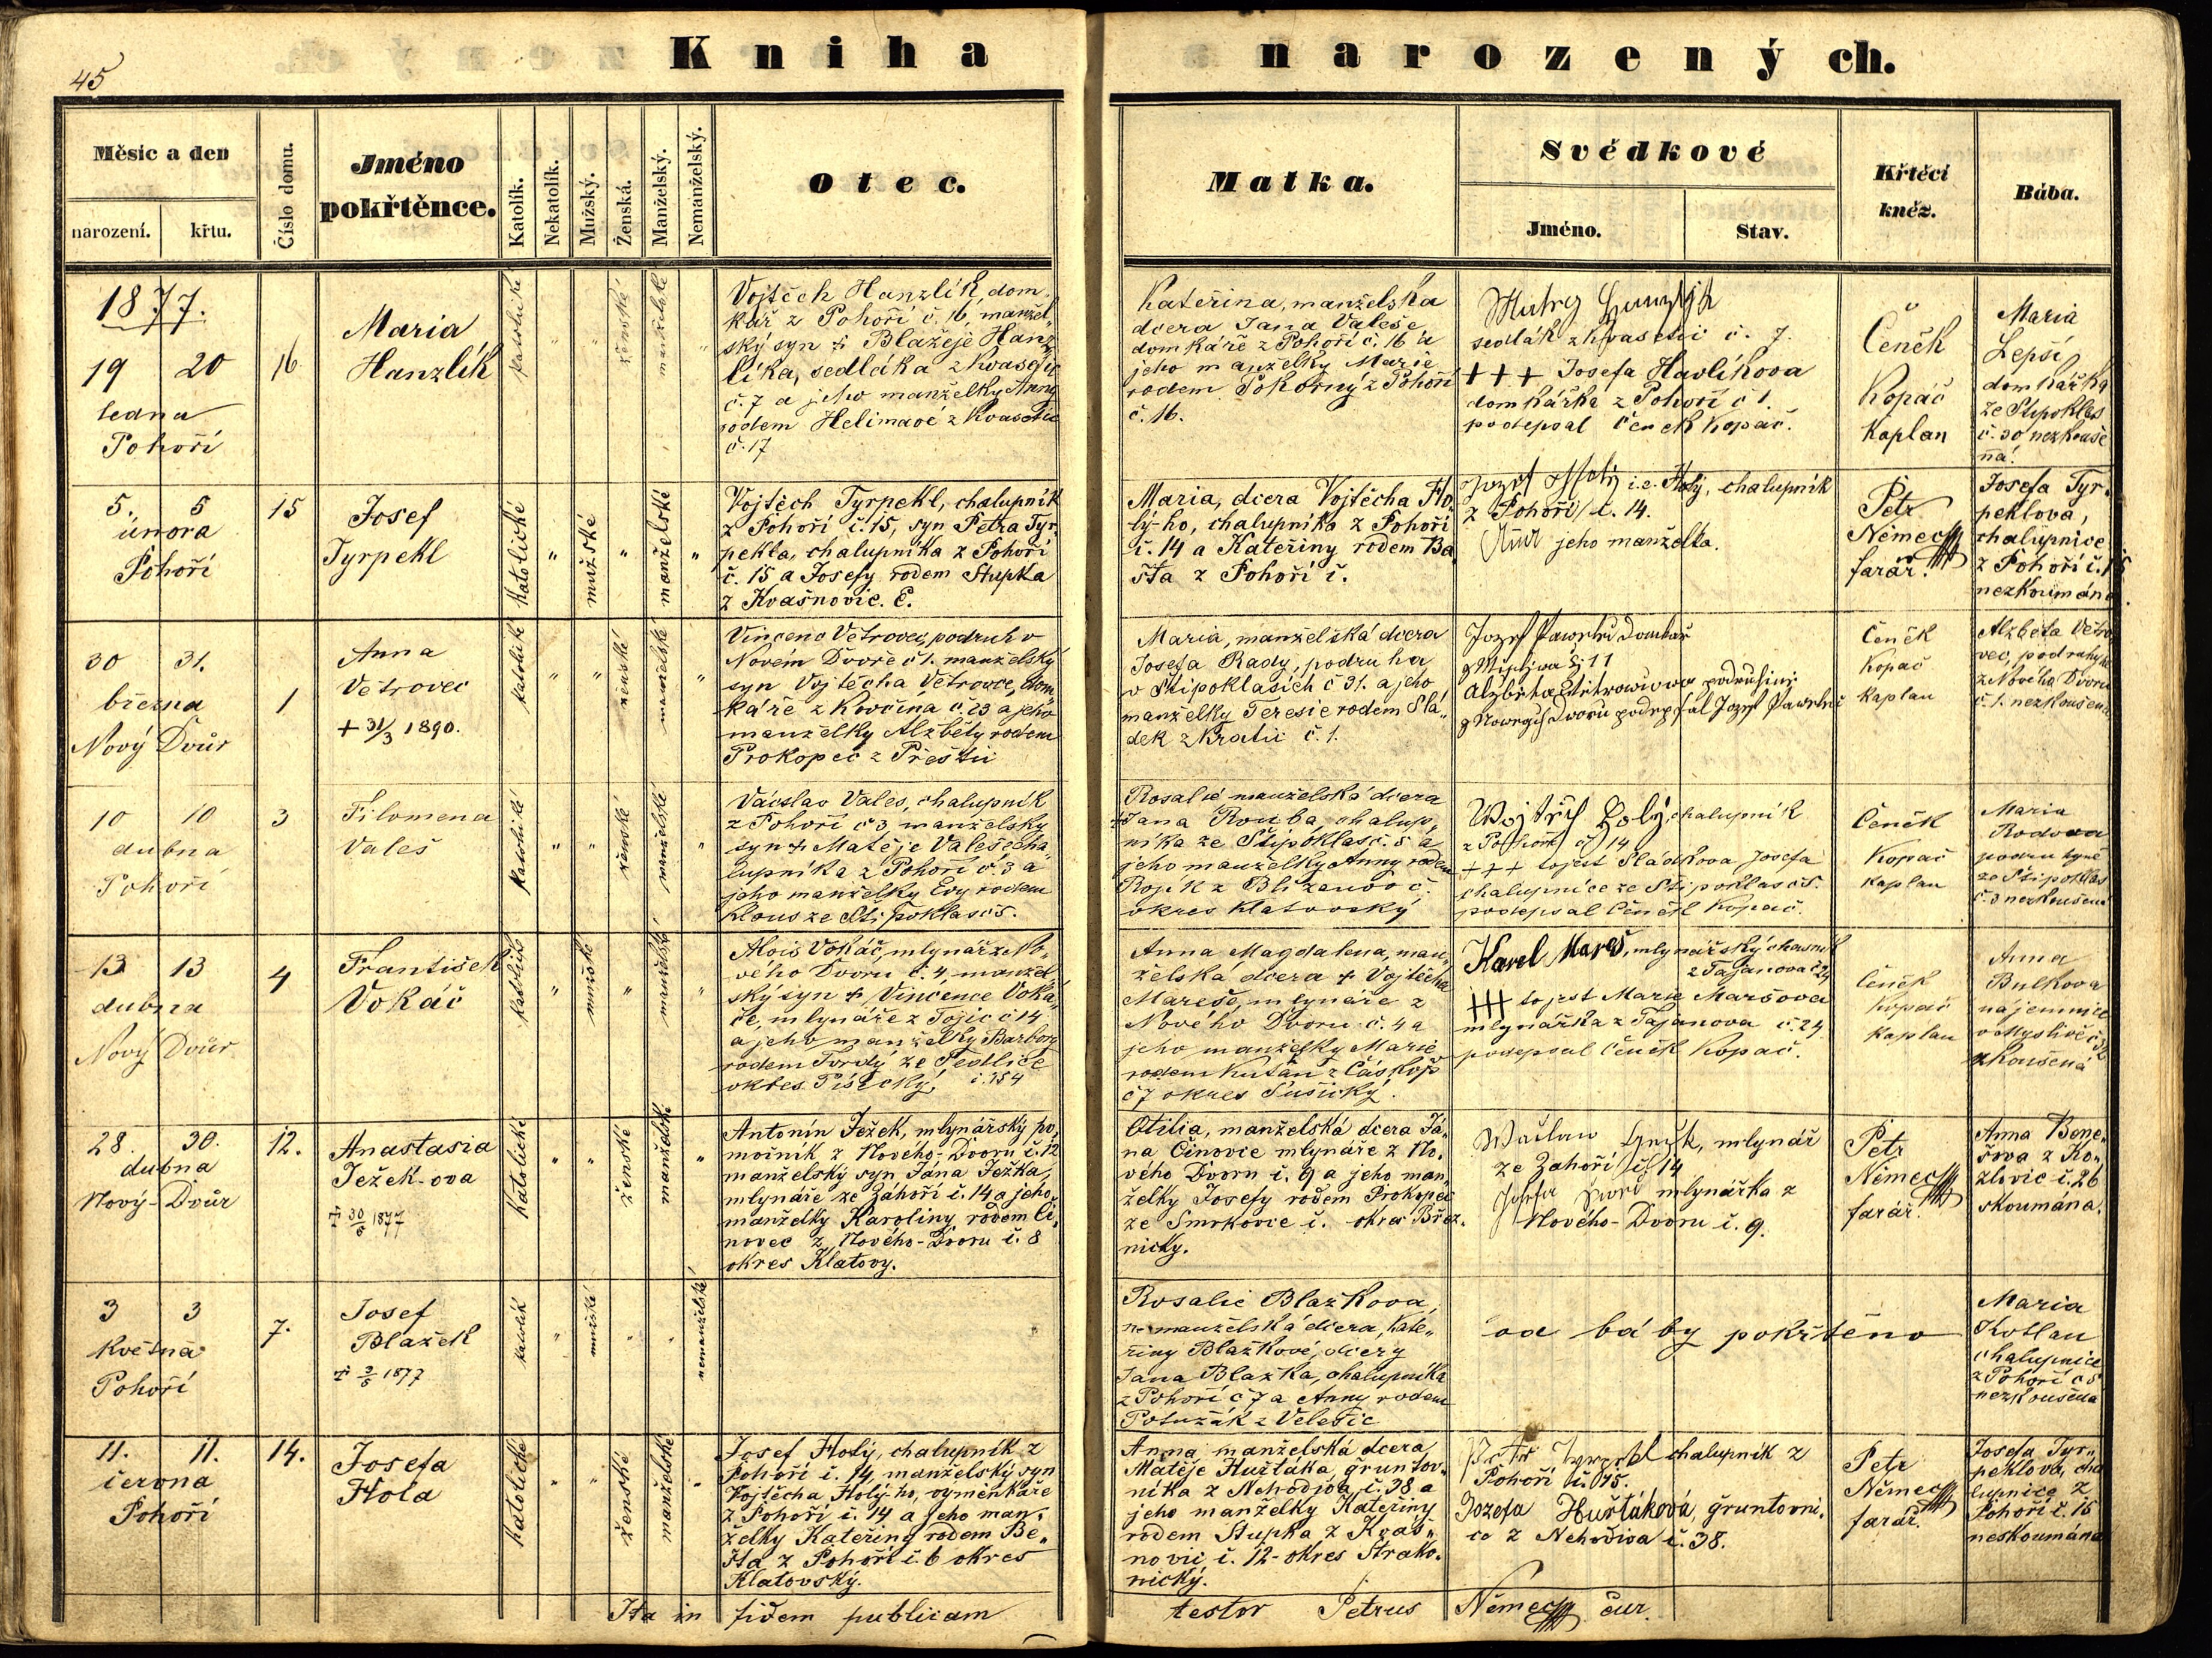 45
Kniha narozených.
Měsíc a den
narození.
křtu.
Číslo domu.
Jméno
pokřtěnce.
Katolík.
Nekatolík.
Mužský.
Ženská.
Manželský.
Nemanželský.
Otec.
Matka.
Svědkové
Jméno.
Stav.
Křtěcí
kněz.
Bába.
1877.
19 20
ledna
Pohoří
16
Maria
Hanzlík
ženská
Vojtěch Hanzlík, dom-
kář z Pohoří č. 16, manžel
ský syn + Blažeje Hanz
líka, sedláka z Kvasetic
č. 7 a jeho manželky Anny
rodem z Kvasetic
č. 17
Kateřina, manželska
dcera Jana Valeše
domkáře z Pohoří č. 16 a
jeho manželky Marie
rodem Pokorný z Pohoří
č. 16.
sedlák z Kvasetic č. 7.
+++ Josefa Havlíkova
domkářka z Pohoří č 1.
podepsal Čeněk Kopač.
Čeněk
Kopáč
Kaplan
Maria
Lepší
domkářka
ze Štipoklas
č. 30 nezkouše
ná.
5. 5
února
Pohoří
15
Josef
Tyrpekl
katolické
"
mužské
"
manželské
"
Vojtěch Tyrpekl, chalupník
z Pohoří č. 15, syn Petra Tyr-
pekla, chalupníka z Pohoří
č. 15 a Josefy rodem Stupka
z Kvašňovic. č.
Maria, dcera Vojtěcha Ho-
lý-ho, chalupníka z Pohoří
č. 14 a Kateřiny rodem Be
šta z Pohoří č.
Jozef Holý i.e. Holý, chalupník
z Pohoří č. 14.
jeho manželka.
Petr
Němec
farář.
Josefa Tyr-
peklová,
chalupnice
z Pohoří č. 15
nezkoumána.
30 31.
března
Nový Dvůr
1
Anna
Větrovec
+ 31/3 1890.
ženské
manželské
"
Vincenc Větrovec, podruh v
Novém Dvoře č 1. manželský
syn Vojtěcha Větrovce, dom
káře z č. 23 a jeho
manželky Alžběty rodem
Prokopec z Přeštic
Maria, manželská dcera
Josefa Rady, podruha
v Štipoklasích č 31. a jeho
manželky Teresie rodem Slá„
dek z Kratic č. 1.
11
Čeněk
Kopač
Kaplan
Alžběta Větro
vec, podruhyně
z Nového Dvoru
č. 1. nezkoušena
10 10
dubna
Pohoří
3
Filomena
Valeš
katolické
" "
ženské
manželské
"
Václav Vales, chalupník
z Pohoří č 3 manželský
syn + Matěje Valeše cha„
lupníka z Pohoří č. 3 a
jeho manželky Evy rodem
Klous ze Štipoklas č 5.
Rosalie manželská dcera
+ Jana Rouba, chalup„
níka ze Štipoklas č. 5 a
jeho manželky Anny rodem
z Bližanov č.
okres Klatovský
Wojtěch Holý, chalupník
z Pohoří č 14
+++ tojest Sládkova Josefa
chalupnice ze Štipoklas č 5.
podepsal Čeněk Kopač.
Čeněk
Kopač
Kaplan
Maria
Radova
podruhyně
ze Štipoklas
č. 3 nezkoušena
13 13
dubna
Nový Dvůr
4
František
Vokáč
"
mužské
"
manželské
"
Alois Vokáč, mlynář z No„
vého Dvoru č. 4 manžel
ský syn + Vincence Voka„
če, mlynáře z Tojic č 14
a jeho manželky Barbory
rodem Tvrdý ze Sedlice
okres Písecký, č. 154
Anna Magdalena, man„
želská dcera + Vojtěcha
Mareše, mlynáře z
Nového Dvoru č. 4 a
jeho manželky Marie
rodem Kutan z
č 7 okres Sušický.
Karel Mareš, mlynářský chasník
z Tajanova č 24
+++ tojest Marie Maršova
mlynářka z Tajanova č. 24
podepsal Čeněk Kopač.
Čeněk
Kopač
Kaplan
Anna
Bulkova
nájemnice
v Myslivě č 32
zkoušená
28. 30.
dubna
Nový-Dvůr
12.
Anastasia
Ježek-ova
+ 30/6 1877
katolické
" "
ženské
manželské
"
Antonín Ježek, mlynářský po„
mocník z Nového-Dvoru č. 12
manželský syn Jána Ježka,
mlynáře ze Záhoří č. 14 a jeho
manželky Karoliny rodem Či„
novec z Nového-Dvoru č. 8
okres Klatovy.
Otilia, manželská dcera Já„
na Činovce mlynáře z No„
vého Dvoru č. 9 a jeho man„
želky Josefy rodem Prokopec
ze Smrkovce č. okres Břez-
nický.
Waclaw Ježek, mlynář
ze Zahoří č. 14
Josefa mlynářka z
Nového-Dvoru č. 9.
Petr
Němec
farář.
Anna Bene„
šova z Ko„
zlovic č. 26
skoumána.
3 3
května
Pohoří
7.
Josef
Blažek
+ 3/5 1877
katolík
"
mužské
" "
nemanželské
Rosalie Blažkova,
nemanželská dcera, Kate„
řiny Blažkové, dcery
Jana Blažka, chalupníka
z Pohoří č 7 a Anny rodem
Potužák z Velešic
od báby pokřtěno
Maria
Kotlan
chalupnice
z Pohoří č 8
nezkoušena
11. 11.
června
Pohoří
14.
Josefa
Holá
katolické
" "
ženské
manželské
"
Josef Holý, chalupník z
Pohoří č. 14, manželský syn
Vojtěcha Holý-ho, výměnkáře
z Pohoří č. 14 a jeho man„
želky Kateřiny rodem Be„
šta z Pohoří č. 6 okres
Klatovský.
Anna manželská dcera
Matěje Hušťáka, gruntov-
níka z Nehodiva č. 38 a
jeho manželky Kateřiny
rodem Stupka z Kvaš„
novic č. 12 - okres Strako-
nický.
Petr Tyrpekl chalupník z
Pohoří č. 15.
Jozefa Hušťáková, gruntovni-
ce z Nehodiva č. 38.
Petr
Němec
farář.
Josefa Tyr„
peklová, cha
lupnice z
Pohoří č. 15
neskoumána
Ita in fidem publicam testor Petrus Němec cur.